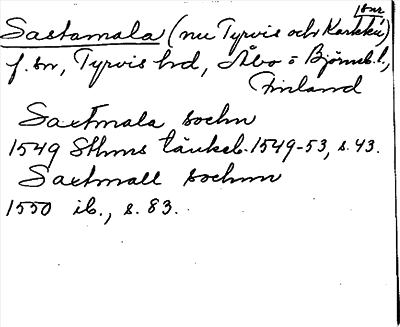 Sastamala (nu Tyrvis och Karkku) snr
f. sn, Tyrvis hd, Åbo o Björneb. l.,
Finland
Saxtmala sochn
1549 Sthms tänkeb. 1549-53, s. 43.
Saxtmall sochnn
1550 ib., s. 83.